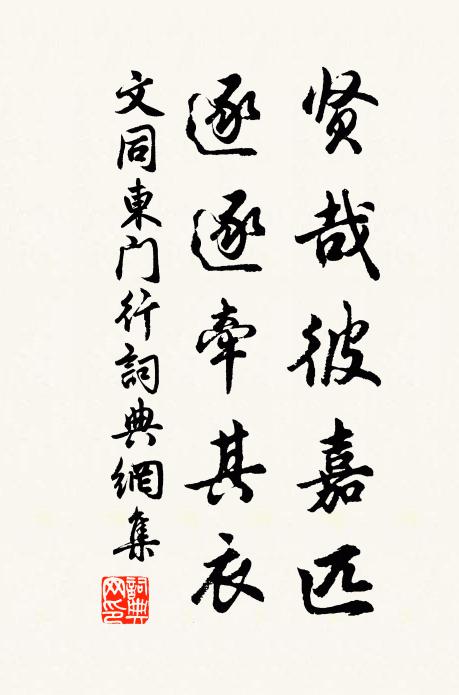 贤哉彼嘉匹
逐逐牵其衣
文同東门行詞典網集
詞典网印